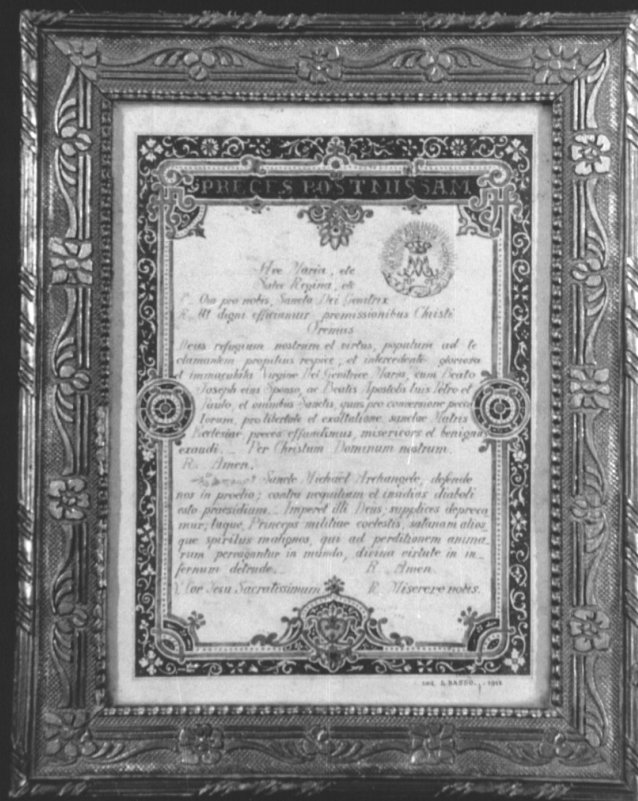 PRECES POST MISSAM
Ave Maria, etc
Salve Regina, etc
V. Ora pro nobis, Sancta Dei Genitrix
R. Ut digni efficiamur promissionibus Christi
Oremus
Deus refugium nostrum et virtus, populum ad te
clamantem propitius respice; et intercedente gloriosa
et immaculata Virgine Dei Genitrice Maria, cum Beato
Joseph eius Sponso, ac Beatis Apostolis tuis Petro et
Paulo, et omnibus Sanctis, quas pro conversione pecca
torum, pro libertate et exaltatione sanctae Matris
Ecclesiae preces effundimus, misericors et benignus
exaudi. _ Per Christum Dominum nostrum.
R. Amen.
Sancte Michaël Archangele, defende
nos in proelio; contra nequitiam et insidias diaboli
esto praesidium._ Imperet illi Deus; supplices depreca
mur; tuque, Princeps militiae coelestis, satanam alios
que spiritus malignos, qui ad perditionem anima
rum pervagantur in mundo, divina virtute in in_
fernum detrude._ R. Amen.
V. Cor Jesu Sacratissimum R. Miserere nobis.